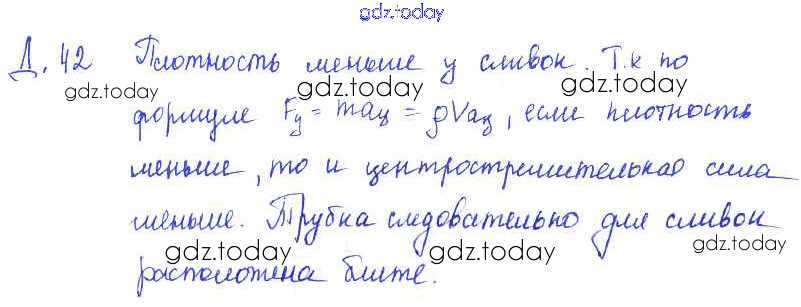 gdz.today
Д. 42 Плотность меньше у сливок. Т.к по
gdz.today gdz.today gdz.today
формуле Fц = maц = ρVaц, если плотность
меньше, то и центростремительная сила
меньше. Трубка следовательно для сливок
gdz.today gdz.today gdz.today
расположена ближе.